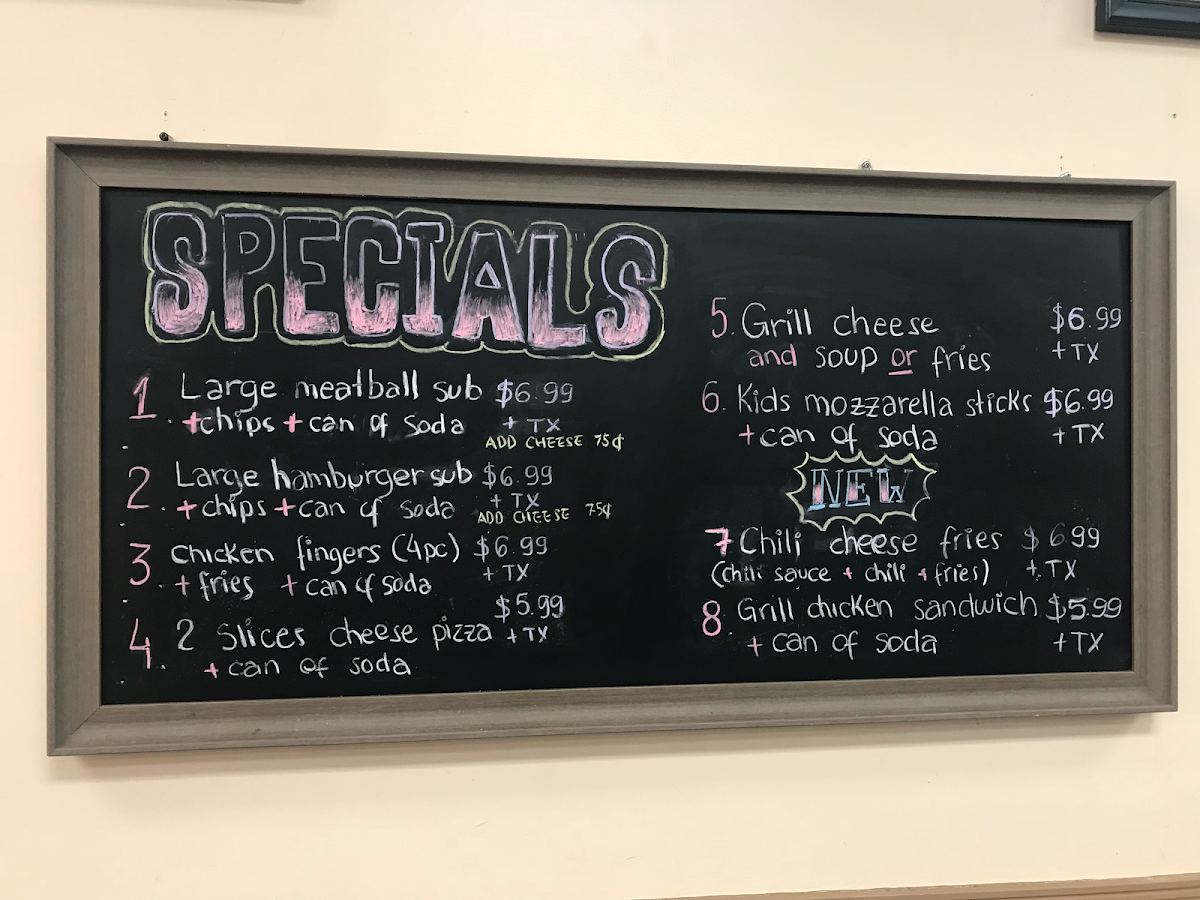 SPECIALS
1 Large meatball sub $6.99
+chips + can of soda + TX
ADD CHEESE 75¢
2. Large hamburger sub $6.99
+chips + can of soda + TX
ADD CHEESE 75¢
3. Chicken fingers (4pc) $6.99
+ fries + can of soda + TX
$5.99
4. 2 Slices cheese pizza + TX
+ can of soda
5. Grill cheese $6.99
and soup or fries + TX
6. Kids mozzarella sticks $6.99
+can of soda + TX
NEW
7 Chili cheese fries $6.99
(chili sauce + chili + fries) + TX
8. Grill chicken sandwich $5.99
+ can of soda + TX